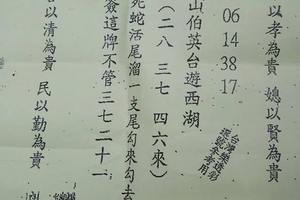 以孝為貴 媳以賢為貴
06 14 38 17
台灣樂透彩
環號參考用
山伯英台遊西湖
(二八 三七 四六來)
死蛇活尾溜一支尾勾來勾去
簽這牌不管三七二十一
君以清為貴 民以勤為貴